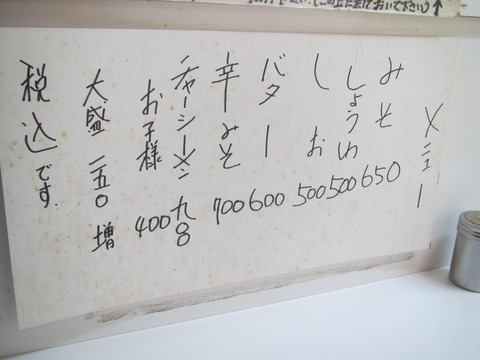 (この上に金[?]おいで下さい)↑
メニュー
みそ 650
しょうゆ 500
しお 500
バター 600
辛みそ 700
チャーシーメン 九〇
お子様 400
大盛 一五〇 増
税込です.